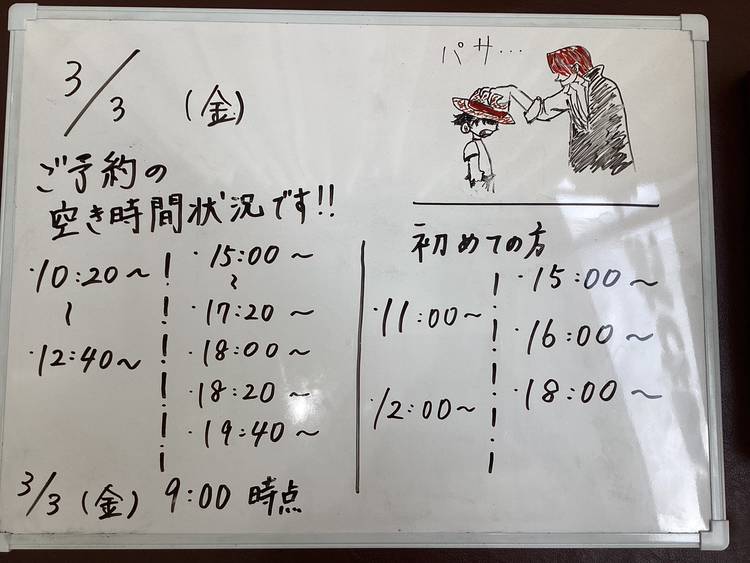 3/3 (金)
パサ...
ご予約の
空き時間状況です!!
・10:20～
～
・12:40～
・15:00～
～
・17:20～
・18:00～
・18:20～
・19:40～
初めての方
・11:00～
・12:00～
・15:00～
・16:00～
・18:00～
3/3(金) 9:00 時点